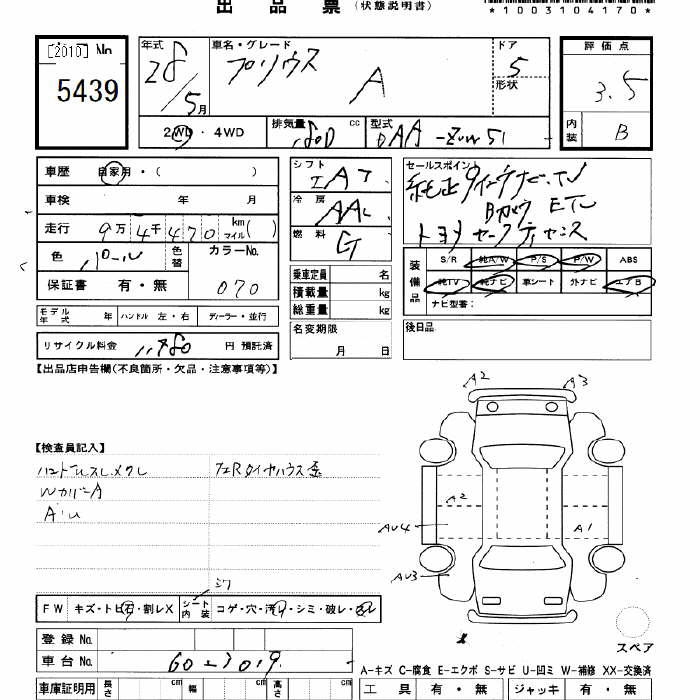 出品票(状態説明書)
*1003104170*
[2010] No.
5439
年式
28/5月
車名・グレード
プリウス A
ドア
5
形状
評価点
3.5
2WD・4WD
排気量 1800 cc
型式 DAA-ZVW51
内装 B
車歴 自家用・( )
車検 年 月
走行 9万4千470 km マイル( )
色 パール 色替
カラーNo. 070
保証書 有・無
シフト IAT
冷房 AAC
燃料 G
乗車定員 名
積載量 kg
総重量 kg
名変期限
月 日
セールスポイント
純正9インチナビ、TV
Bカメラ ETC
トヨタセーフティセンス
装備品
S/R 純A/W P/S P/W ABS
純TV 純ナビ 革シート 外ナビ エアB
ナビ型番:
後日品
モデル年式 年 ハンドル 左・右 ディーラー・並行
リサイクル料金 11,780 円 預託済
【出品店申告欄(不良箇所・欠品・注意事項等)】
【検査員記入】
ハンドルスレ、メクレ
WカバーA
A・U
A2 A3
A2
AU4 A1
AU3
スペア
FW キズ・トビ石・割レX
シート内装 コゲ・穴・汚レ・シミ・破レ・スレ
登録No.
車台No. 60-3019
A-キズ C-腐食 E-エクボ S-サビ U-凹ミ W-補修 XX-交換済
車庫証明用 長さ cm 幅 cm 高さ cm
工具 有・無 ジャッキ 有・無